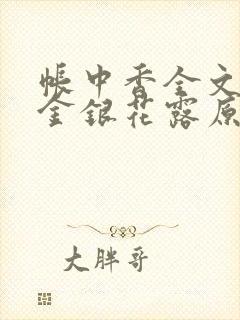 帐中香全文
金银花露原
大胖哥